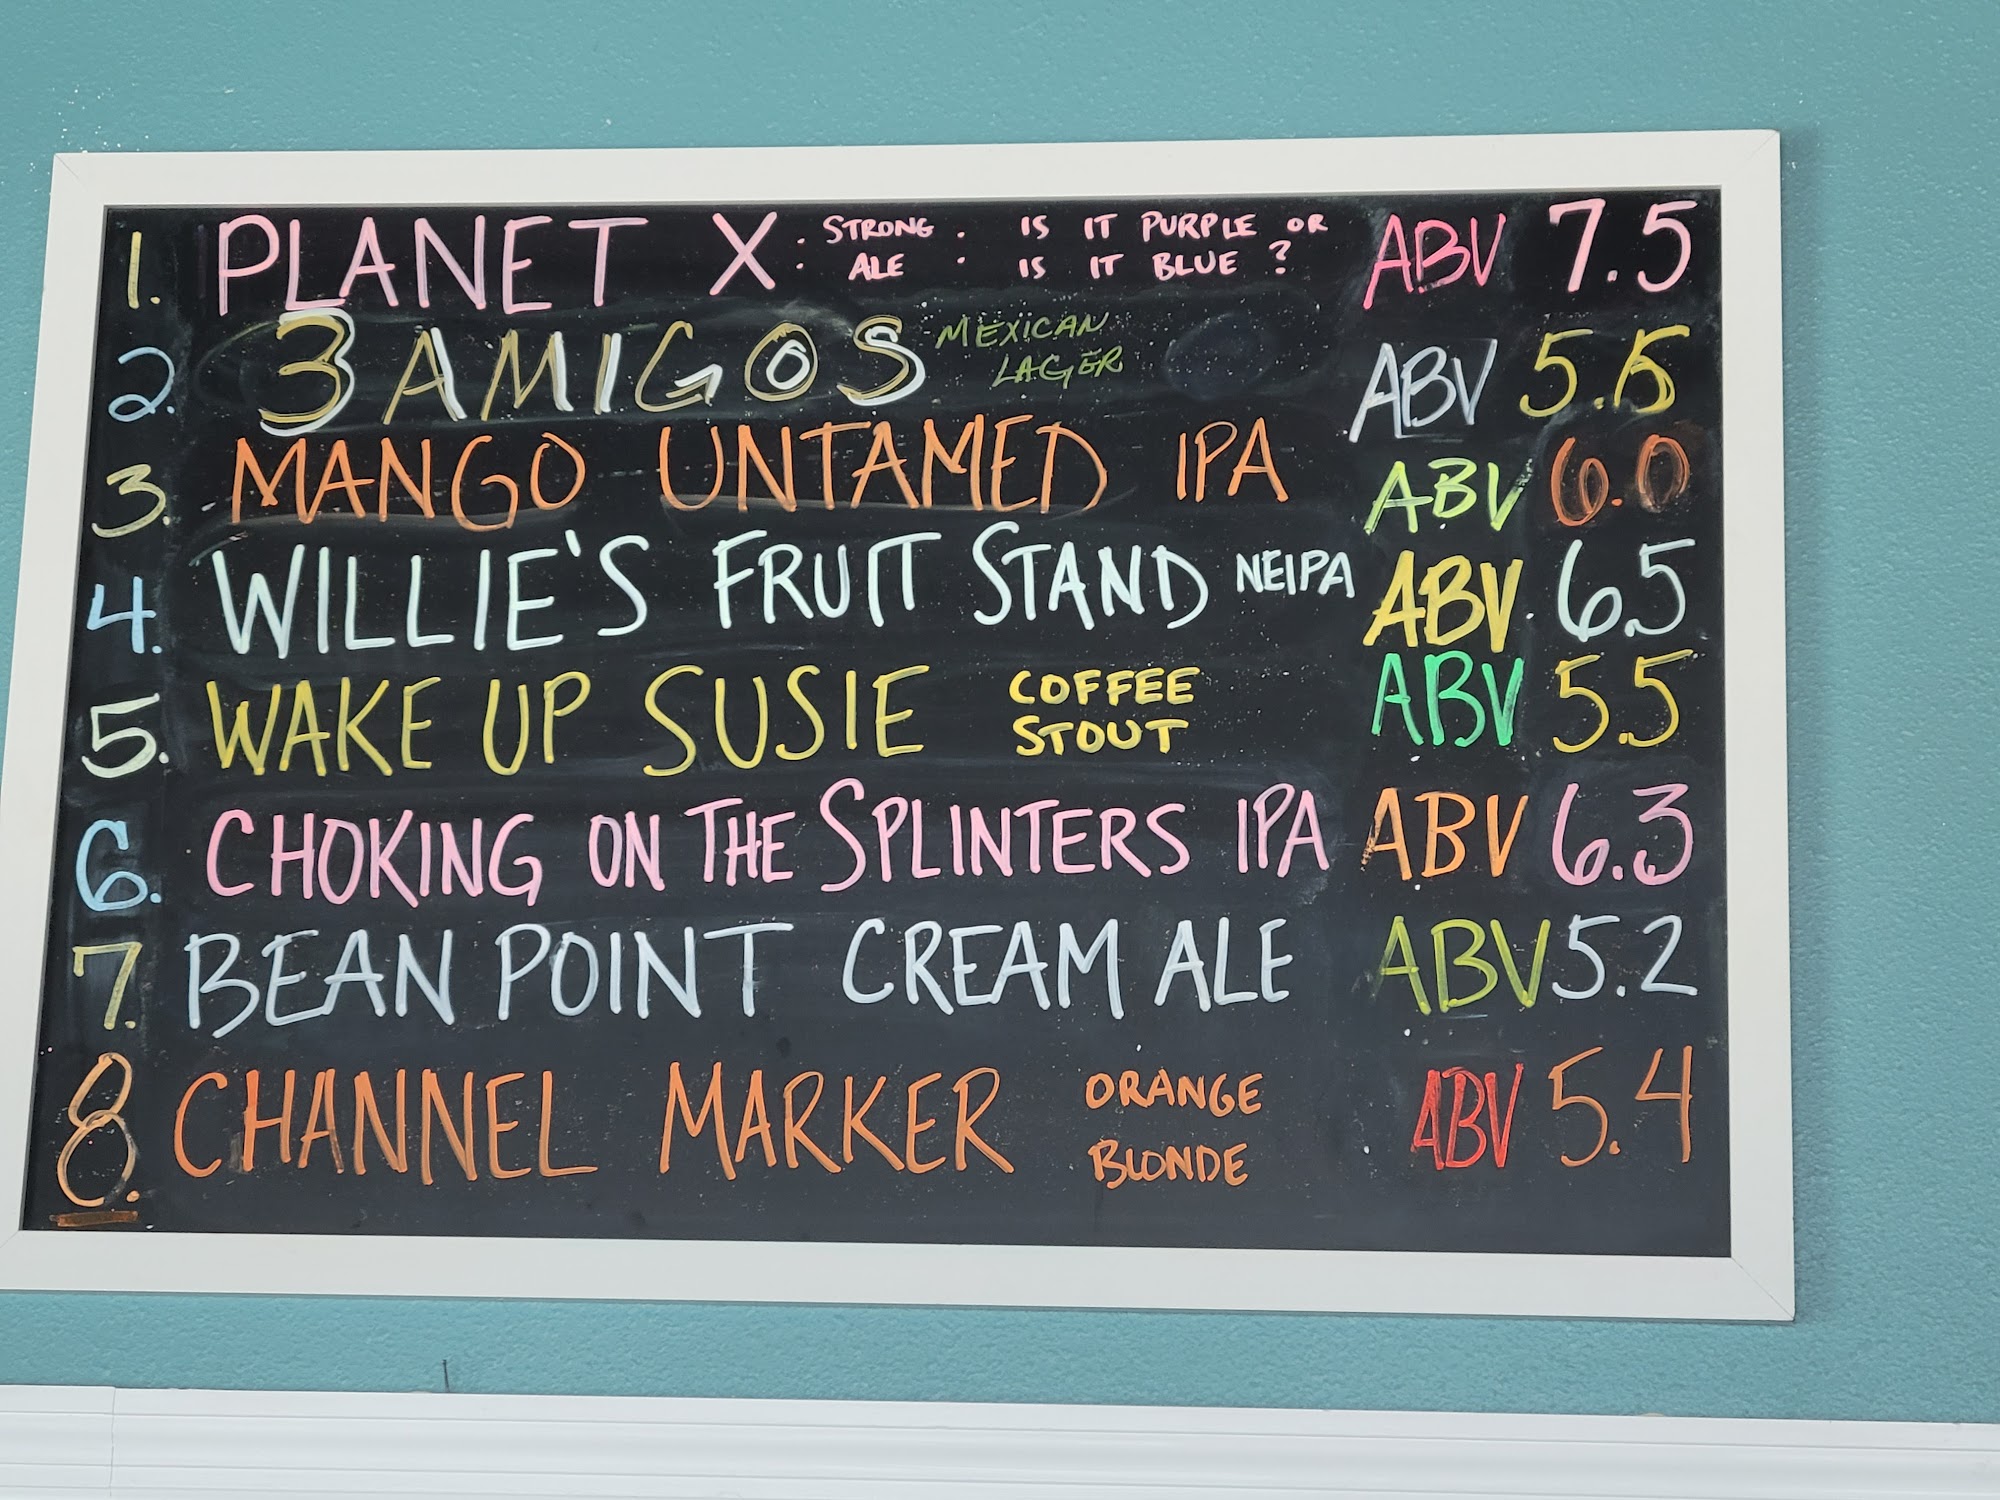 1. PLANET X : STRONG ALE : IS IT PURPLE OR IS IT BLUE ? ABV 7.5
2. 3 AMIGOS MEXICAN LAGER ABV 5.5
3. MANGO UNTAMED IPA ABV 6.0
4. WILLIE'S FRUIT STAND NEIPA ABV. 6.5
5. WAKE UP SUSIE COFFEE STOUT ABV 5.5
6. CHOKING ON THE SPLINTERS IPA ABV 6.3
7. BEAN POINT CREAM ALE ABV 5.2
8. CHANNEL MARKER ORANGE BLONDE ABV 5.4